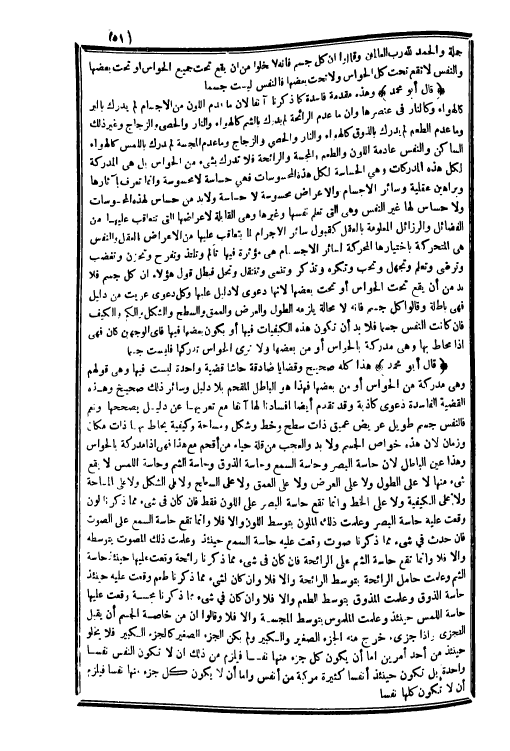 (٥١)
جملة والحمد لله رب العالمين وقالوا ان كل جسم فانه لا يخلوا من ان يقع تحت جميع الحواس أو تحت بعضها
والنفس لا تقع تحت كل الحواس ولا تحت بعضها فالنفس ليست جسما
﴿ قال أبو محمد ﴾ وهذه مقدمة فاسدة كما ذكرنا آنفا لان ما عدم اللون من الاجسام لم يدرك بالبصر
كالهواء وكالنار في عنصرها وان ما عدم الرائحة لم يدرك بالشم كالهواء والنار والحصى والزجاج وغير ذلك
وما عدم الطعم لم يدرك بالذوق كالهواء والنار والحصى والزجاج وما عدم المجسة لم يدرك باللمس كالهواء
الساكن والنفس عادمة اللون والطعم والمجسة والرائحة فلا تدرك بشيء من الحواس بل هي المدركة
لكل هذه المدركات وهي الحساسة لكل هذه المحسوسات فهي حساسة لا محسوسة وانما تعرف بآثارها
وبراهين عقلية وسائر الاجسام والاعراض محسوسة لا حساسة ولا بد من حساس لهذه المحسوسات
ولا حساس لها غير النفس وهي التي تعلم نفسها وغيرها وهي القابلة لاعراضها التي تتعاقب عليها من
الفضائل والرزائل المعلومة بالعقل كقبول سائر الاجرام لما يتعاقب عليها من الاعراض بالعقل والنفس
هي المتحركة باختيارها المحركة لسائر الاجسام هي مؤثرة فيها تألم وتلتذ وتفرح وتحزن وتغضب
وترضى وتعلم وتجهل وتحب وتكره وتذكر وتنسى وتنتقل وتحل فبطل قول هؤلاء ان كل جسم فلا
بد من أن يقع تحت الحواس أو تحت بعضها لانها دعوى لا دليل عليها وكل دعوى عريت من دليل
فهي باطلة وقالوا كل جسم فانه لا محالة يلزمه الطول والعرض والعمق والسطح والشكل والكم والكيف
فان كانت النفس جسما فلا بد أن تكون هذه الكيفيات فيها أو يكون بعضها فيها فاي الوجهين كان فهي
اذا محاط بها وهي مدركة بالحواس أو من بعضها ولا نرى الحواس تدركها فليست جسما
﴿ قال أبو محمد ﴾ هذا كله صحيح وقضايا صادقة حاشا قضية واحدة ليست فيها وهي قولهم
وهي مدركة من الحواس أو من بعضها فهذا هو الباطل المقحم بلا دليل وسائر ذلك صحيح وهذه
القضية الفاسدة دعوى كاذبة وقد تقدم أيضا افسادنا لها آنفا مع تعريها عن دليل يصححها ونعم
فالنفس جسم طويل عريض عميق ذات سطح وخط وشكل ومساحة وكيفية يحاط بها ذات مكان
وزمان لان هذه خواص الجسم ولا بد والعجب من قلة حياء من أقحم مع هذا فهي اذا مدركة بالحواس
وهذا عين الباطل لان حاسة البصر وحاسة السمع وحاسة الذوق وحاسة الشم وحاسة اللمس لا يقع
شيء منها لا على الطول ولا على العرض ولا على العمق ولا على السطح ولا على الشكل ولا على المساحة
ولا على الكيفية ولا على الخط وانما تقع حاسة البصر على اللون فقط فان كان في شيء مما ذكرنا لون
وقعت عليه حاسة البصر وعلمت ذلك الملون بتوسط اللون والا فلا وانما تقع حاسة السمع على الصوت
فان حدث في شيء مما ذكرنا صوت وقعت عليه حاسة السمع حينئذ وعلمت ذلك المصوت بتوسطه
والا فلا وانما تقع حاسة الشم على الرائحة فان كان في شيء مما ذكرنا رائحة وقعت عليها حينئذ حاسة
الشم وعلمت حامل الرائحة بتوسط الرائحة والا فلا وان كان لشيء مما ذكرنا طعم وقعت عليه حينئذ
حاسة الذوق وعلمت المذوق بتوسط الطعم والا فلا وان كان في شيء مما ذكرنا مجسة وقعت عليها
حاسة اللمس حينئذ وعلمت الملموس بتوسط المجسة والا فلا وقالوا ان من خاصة الجسم أن يقبل
التجزي واذا جزى خرج منه الجزء الصغير والكبير ولم يكن الجزء الصغير كالجزء الكبير فلا يخلو
حينئذ من أحد أمرين اما أن يكون كل جزء منها نفسا فيلزم من ذلك ان لا تكون النفس نفسا
واحدة بل تكون حينئذ أنفسا كثيرة مركبة من أنفس واما أن لا يكون كل جزء منها نفسا فيلزم
أن لا تكون كلها نفسا